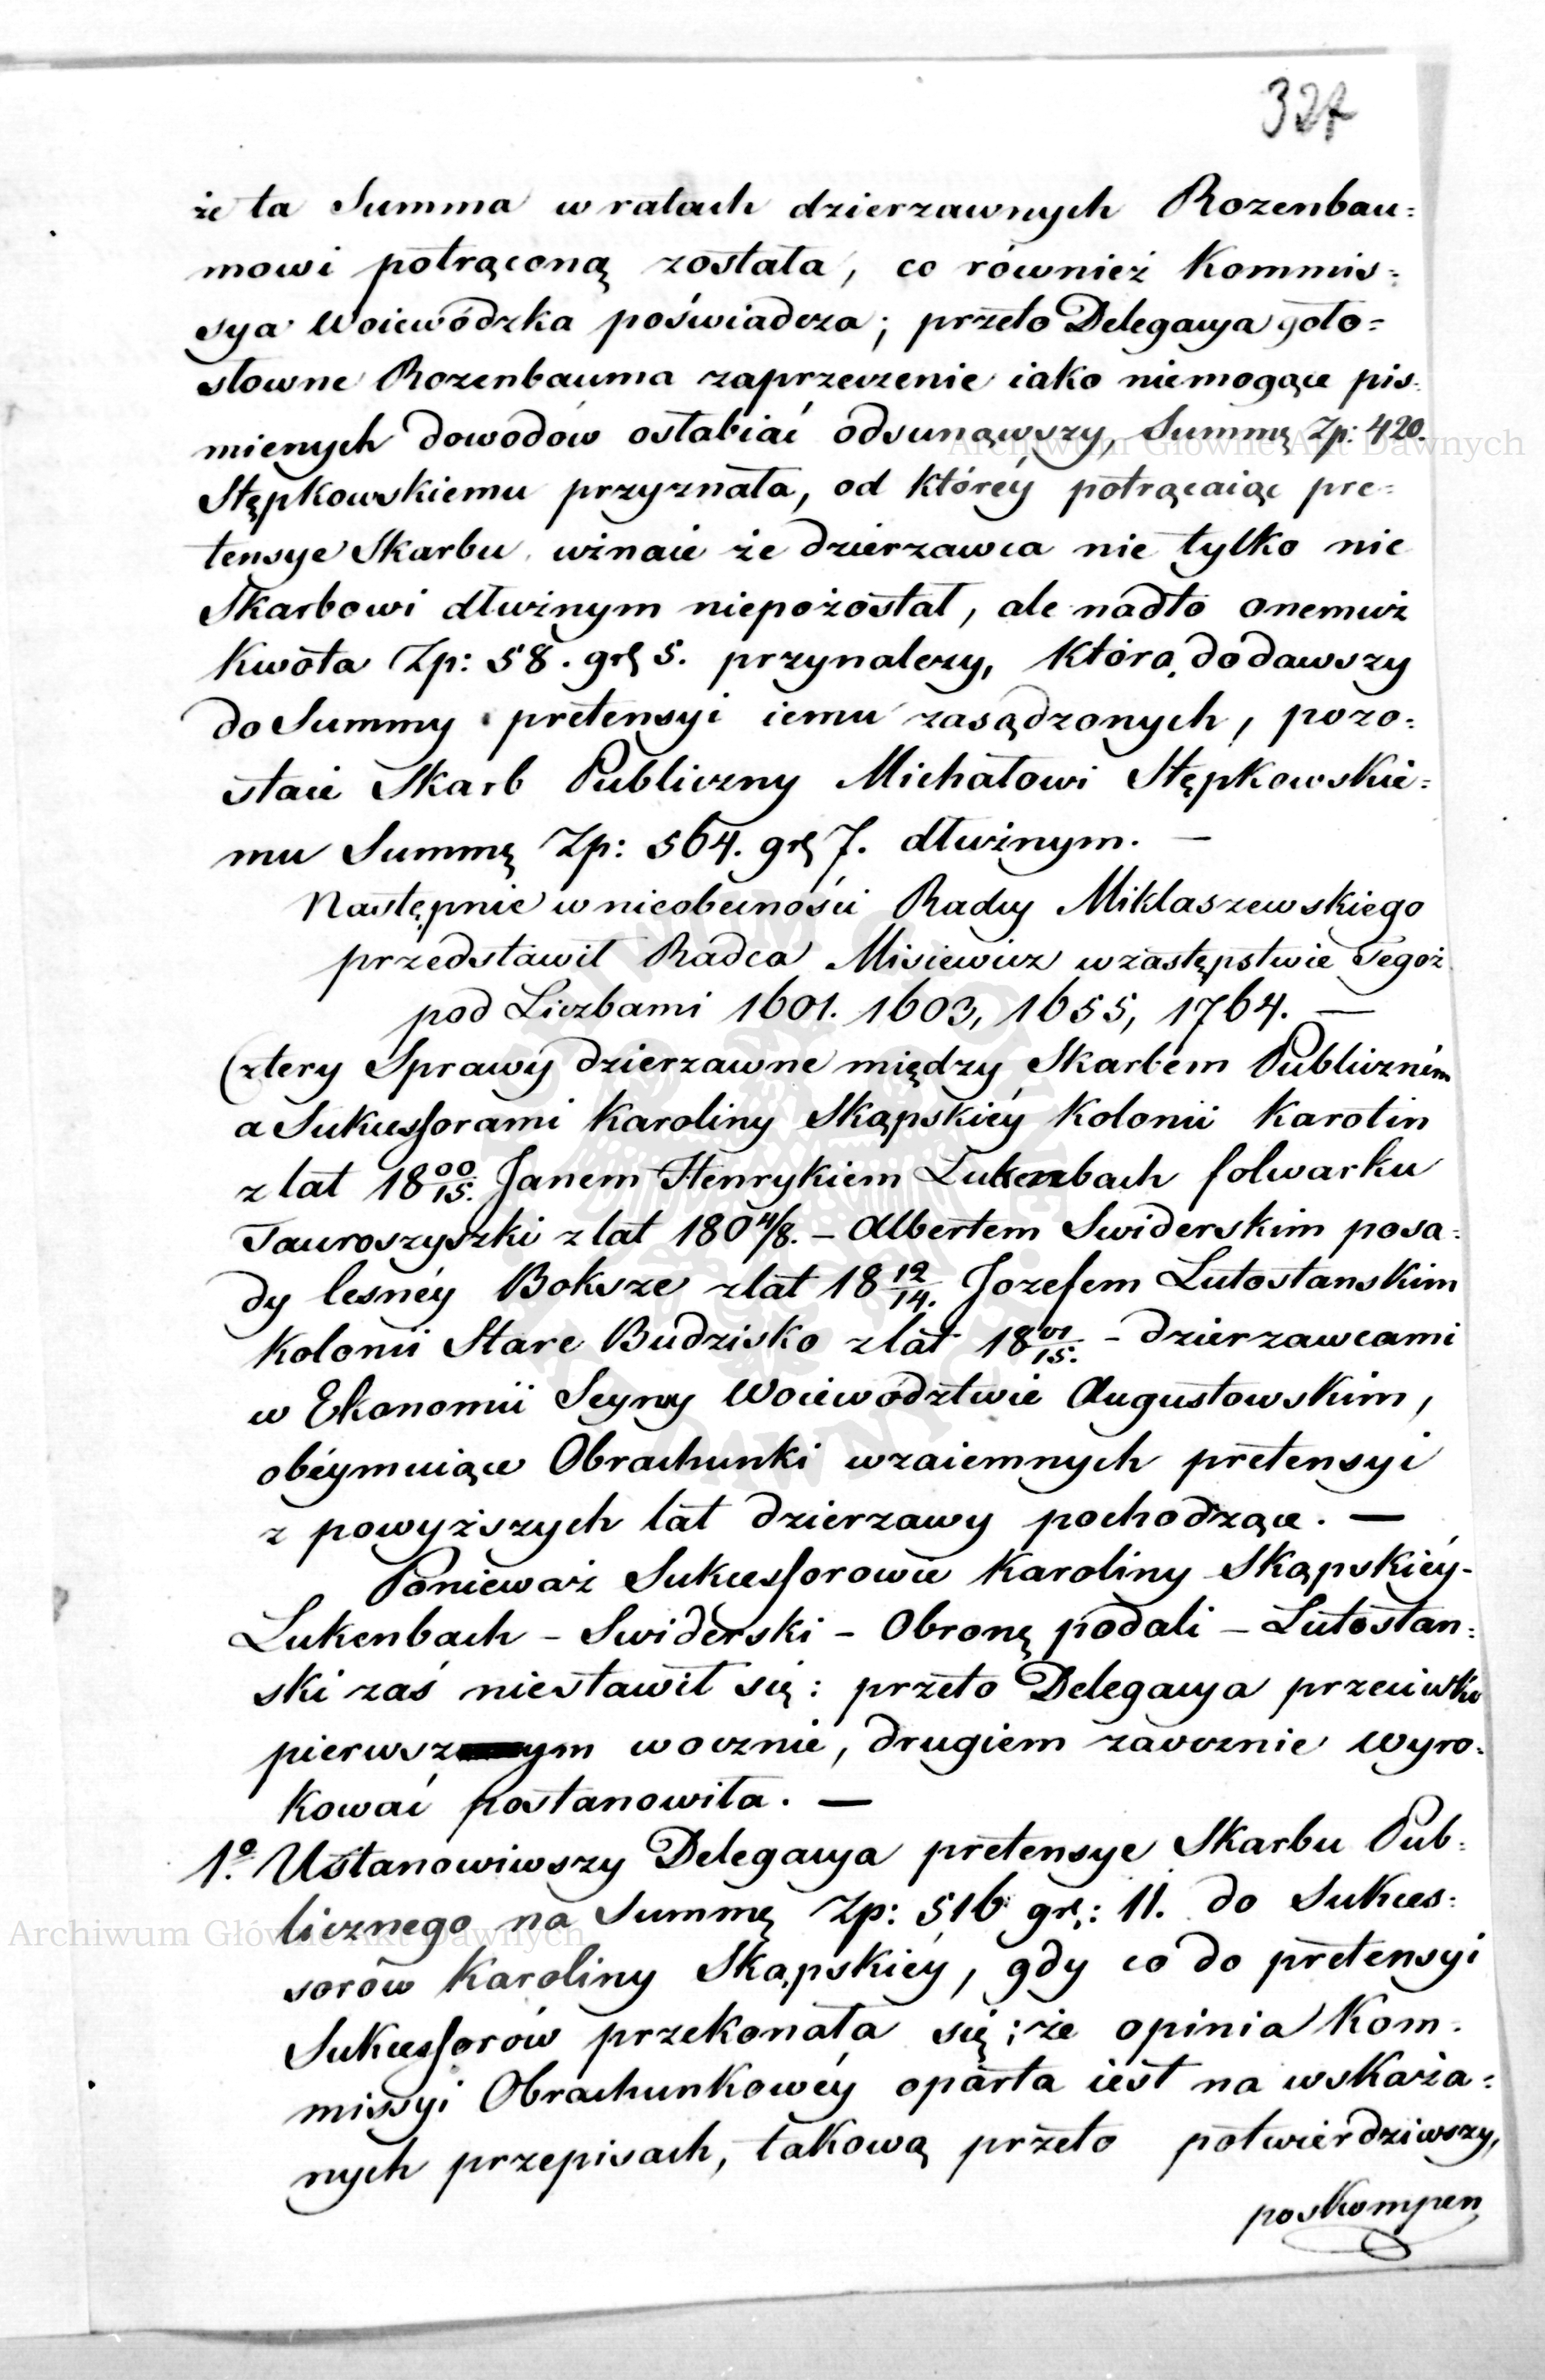 327
że ta Summa w ratach dzierzawnych Rozenbau=
mowi potrąconą została, co również Kommis=
sya Woiewódzka poświadcza; przeto Delegacya goło=
słowne Rozenbauma zaprzeczenie iako niemogące pis=
mienych dowodów osłabiać odsunąwszy, Summę Zp: 420.
Stępkowskiemu przyznała, od któréy potrącaiąc pre=
tensye Skarbu uznaie że dzierzawca nie tylko nic
Skarbowi dłużnym niepozostał, ale nadto onemuż
Kwota Zp: 58. gr 5. przynależy, którą dodawszy
do Summy pretensyi iemu zasądzonych, pozo=
staie Skarb Publiczny Michałowi Stępkowskie=
mu Summę Zp: 564. gr 7. dłużnym. —
Następnie w nieobecności Radcy Miklaszewskiego
przedstawił Radca Misiewicz w zastępstwie Tegoż
pod Liczbami 1601. 1603, 1655, 1764. —
Cztery Sprawy dzierzawne między Skarbem Publiczném
a Sukcessorami Karoliny Skąpskiéy Kolonii Karolin
z lat 18 00/15. Janem Henrykiem Lukenbach folwarku
Tauroszyszki z lat 180 4/8. – Albertem Swiderskim posa=
dy leśnéy Boksze z lat 18 12/14. Jozefem Lutostanskim
Kolonii Stare Budzisko z lat 18 01/15. – dzierzawcami
w Ekonomii Seyny Woiewództwie Augustowskim,
obéymuiące Obrachunki wzaiemnych pretensyi
z powyższych lat dzierzawy pochodzące. —
Ponieważ Sukcessorowie Karoliny Skąpskiéy-
Lukenbach – Swiderski – Obronę podali – Lutostan=
ski zaś niestawił się: przeto Delegacya przeciwko
pierwszym wocznie, drugiem zaocznie Wyro=
kować postanowiła. —
1º. Ustanowiwszy Delegacya pretensye Skarbu Pub=
licznego na Summę Zp: 516 gr: 11. do Sukces=
sorów Karoliny Skąpskiéy, gdy co do pretensyi
Sukcessorów przekonała się; że opinia Kom=
missyi Obrachunkowéy oparta iest na wskaza=
nych przepisach, takową przeto potwierdziwszy,
poskompen
Archiwum Główne Akt Dawnych
Archiwum Główne Akt Dawnych